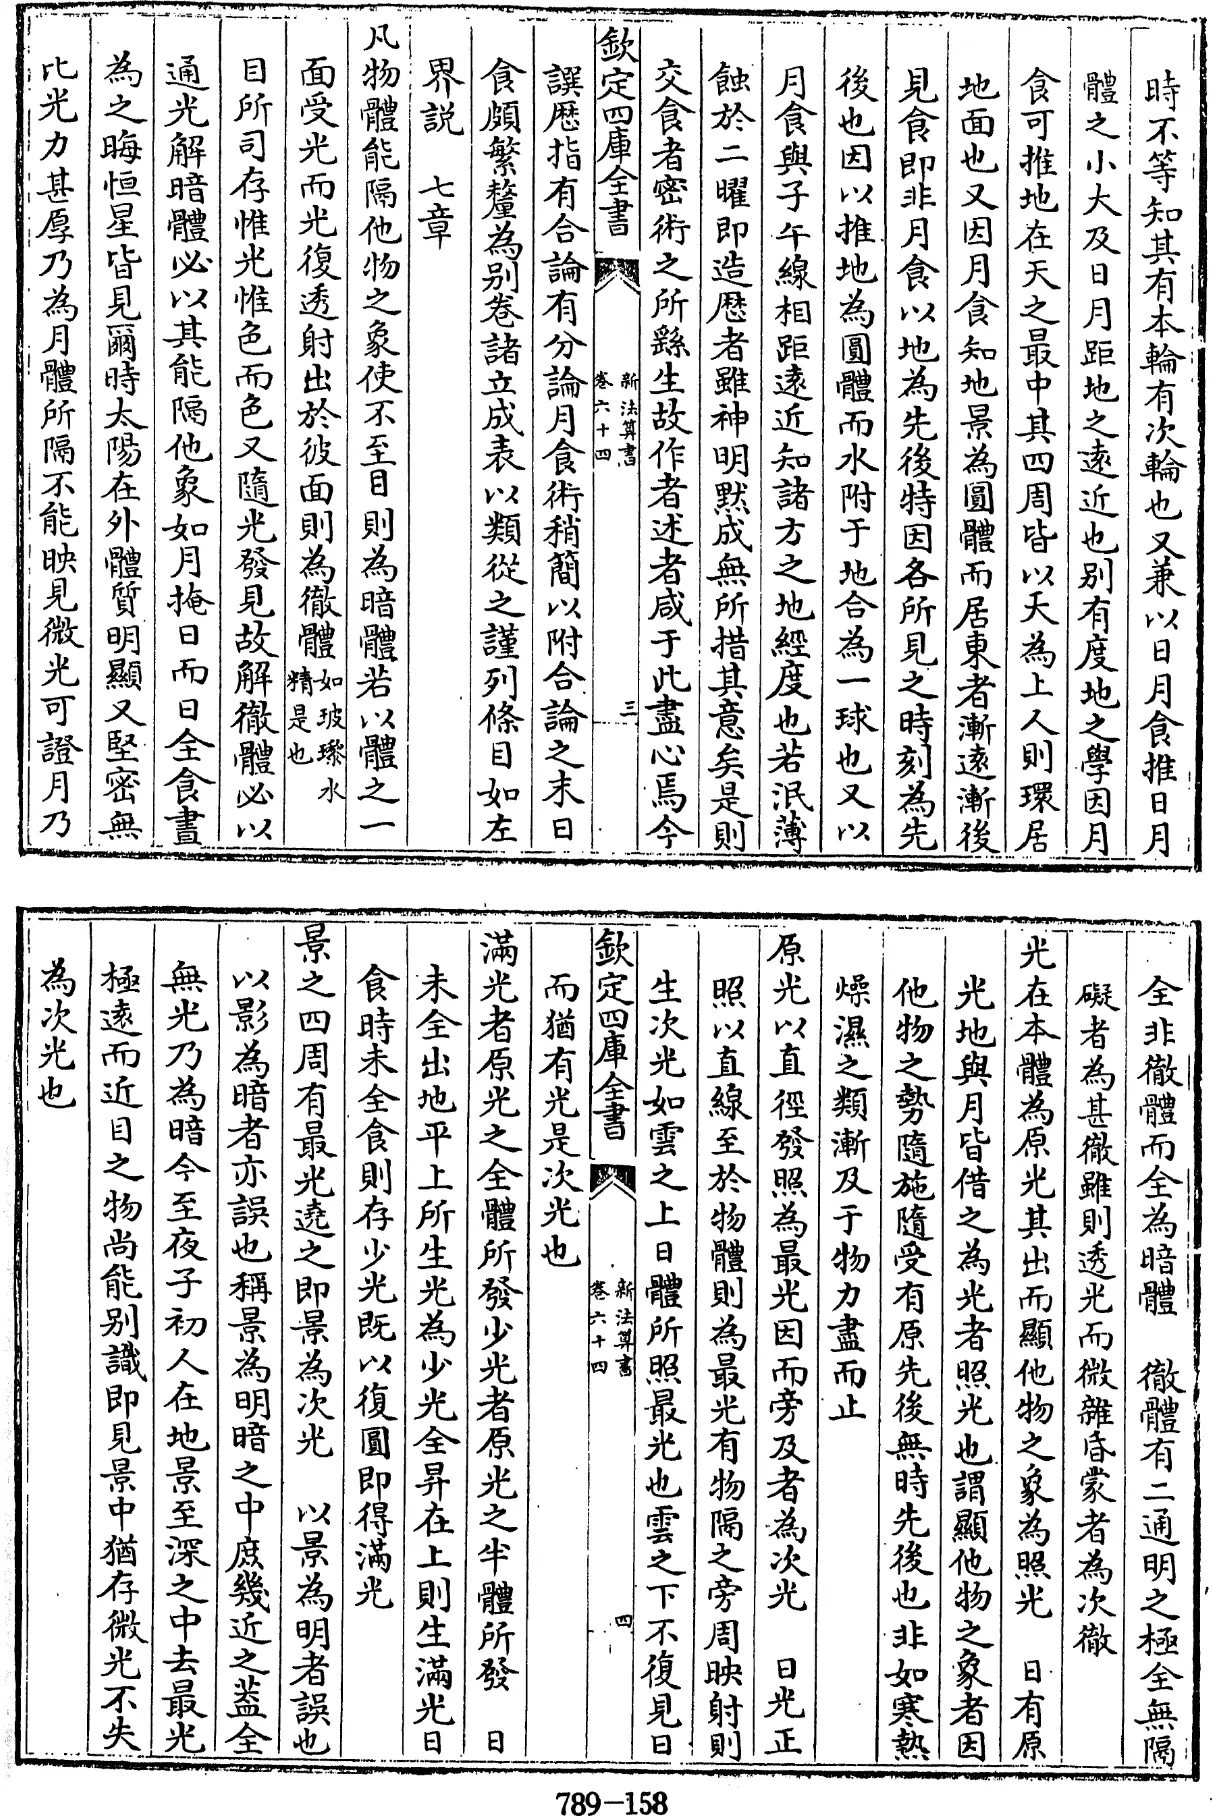 時不等知其有本輪有次輪也又兼以日月食推日月
體之小大及日月距地之遠近也别有度地之學因月
食可推地在天之最中其四周皆以天為上人則環居
地面也又因月食知地景為圓體而居東者漸遠漸後
見食即非月食以地為先後特因各所見之時刻為先
後也因以推地為圓體而水附于地合為一球也又以
月食與子午線相距遠近知諸方之地經度也若泯薄
蝕於二曜即造歴者雖神明黙成無所措其意矣是則
交食者密術之所繇生故作者述者咸于此盡心焉今
欽定四庫全書
新法算書
卷六十四
三
譔歴指有合論有分論月食術稍簡以附合論之末日
食頗繁釐為别卷諸立成表以類從之謹列條目如左
界説 七章
凡物體能隔他物之象使不至目則為暗體若以體之一
面受光而光復透射出於彼面則為徹體如玻瓈水
精是也
目所司存惟光惟色而色又隨光發見故解徹體必以
通光解暗體必以其能隔他象如月掩日而日全食晝
為之晦恒星皆見爾時太陽在外體質明顯又堅密無
比光力甚厚乃為月體所隔不能映見微光可證月乃
全非徹體而全為暗體 徹體有二通明之極全無隔
礙者為甚徹雖則透光而微雜昏蒙者為次徹
光在本體為原光其出而顯他物之象為照光 日有原
光地與月皆借之為光者照光也謂顯他物之象者因
他物之勢隨施隨受有原先後無時先後也非如寒熱
燥濕之類漸及于物力盡而止
原光以直徑發照為最光因而旁及者為次光 日光正
照以直線至於物體則為最光有物隔之旁周映射則
生次光如雲之上日體所照最光也雲之下不復見日
欽定四庫全書
新法算書
卷六十四
四
而猶有光是次光也
滿光者原光之全體所發少光者原光之半體所發 日
未全出地平上所生光為少光全昇在上則生滿光日
食時未全食則存少光既以復圓即得滿光
景之四周有最光遶之即景為次光 以景為明者誤也
以影為暗者亦誤也稱景為明暗之中庶幾近之葢全
無光乃為暗今至夜子初人在地景至深之中去最光
極遠而近目之物尚能别識即見景中猶存微光不失
為次光也
789-158